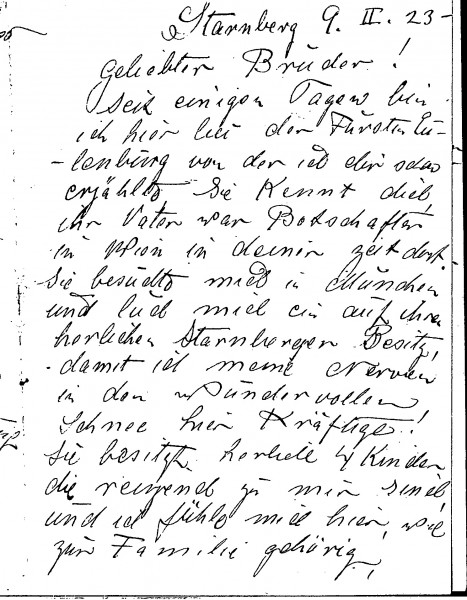 Starnberg 9. II. 23-
Geliebter Bruder!
Seit einigen Tagen bin
ich hier bei der Fürstin Eu-
-lenburg von der ich dir schon
erzählte, Sie kennt dich,
ihr Vater war Botschafter
in Wien in deiner Zeit dort.
Sie besuchte mich in München
und lud mich ein auf ihren
herlichen Starnberger Besitz,
damit ich meine Nerven
in den Wundervollen
Schnee hier Kräftige!
Sie besitzt herliche 4 Kinder
die reizend zu mir sind,
und ich fühle mich hier, wie
zur Familie gehörig,